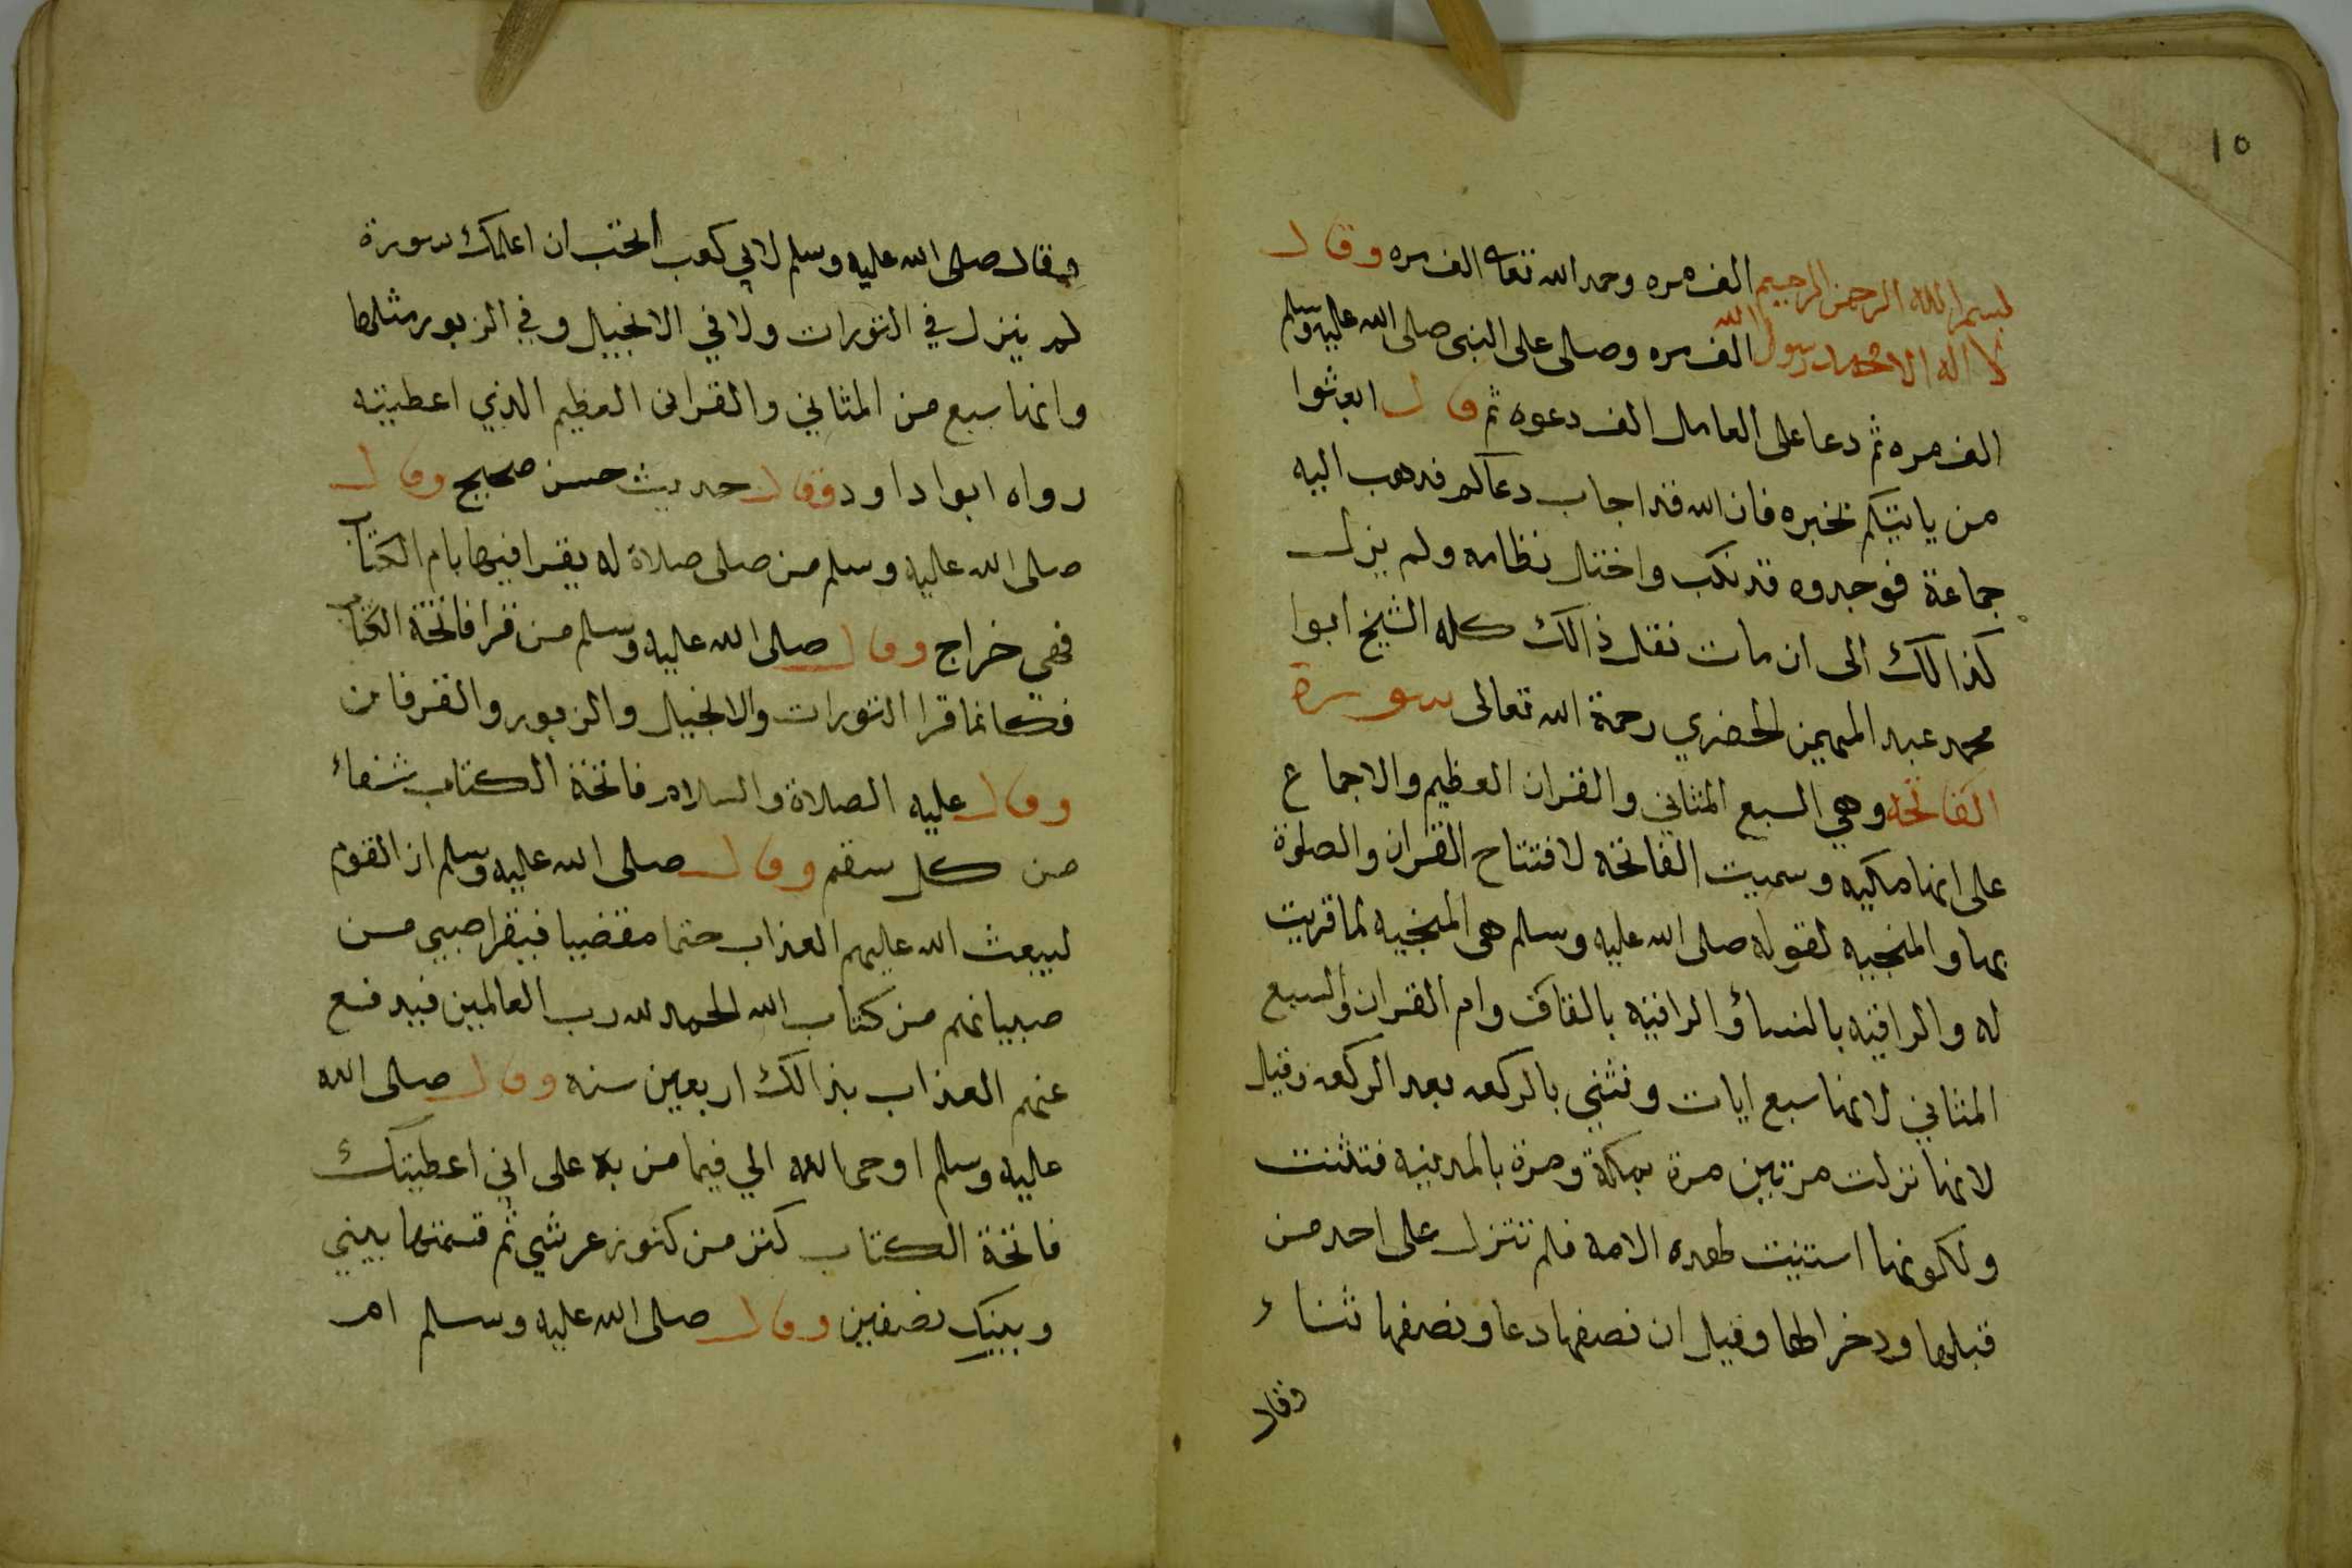 ١٥
بسم الله الرحمن الرحيم الف مره وحمد الله تعالى الف مره وقال
لا اله الا الله محمد رسول الله الف مره وصلى على النبي صلى الله عليه وسلم
الف مره ثم دعا على العامل الف دعوه ثم قال ابعثوا
من ياتيكم بخبره فان الله قد اجاب دعاكم فدهب اليه
جماعة فوجدوه قد نكب واختل نظامه ولم يزل
كذالك الى ان مات نقل ذالك كله الشيخ ابوا
محمد عبد المهيمن الحضري رحمة الله تعالى سورة
الفاتحه وهي السبع المثاني والقران العظيم والاجماع
على انها مكيه وسميت الفاتحه لافتتاح القران والصلوة
بها والمنجيه لقوله صلى الله عليه وسلم هي المنجيه لما قريت
له والراقيه بالنسا والراقيه بالقاف وام القران والسبع
المثاني لانها سبع ايات وتثني بالركعه بعد الركعه وقيل
لانها نزلت مرتين مرة بمكة ومرة بالمدينه فتثنت
ولكونها استنيت لهده الامه فلم تنزل على احد من
قبلها ودخرا لها وقيل ان نصفها دعا ونصفها ثناء
وقال
وقال صلى الله عليه وسلم لابي كعب اتحب ان اعلمك سورة
لم ينزل في التورات ولا في الانجيل وفي الزبور مثلها
وانها سبع من المثاني والقران العظيم الذي اعطيته
رواه ابوا داود وقال حديث حسن صحيح وقال
صلى الله عليه وسلم من صلى صلاة له يقرا فيها بام الكتاب
فهي خراج وقال صلى الله عليه وسلم من قرا فاتحة الكتاب
فكانما قرا التورات والانجيل والزبور والفرقان
وقال عليه الصلاة والسلام فاتحة الكتاب شفاء
من كل سقم وقال صلى الله عليه وسلم ان القوم
ليبعث الله عليهم العذاب حتما مقضيا فيقرا صبي من
صبيانهم من كتاب الله الحمد لله رب العالمين فيدفع
عنهم العذاب بذالك اربعين سنه وقال صلى الله
عليه وسلم اوحى الله الي فيما من به على اني اعطيتك
فاتحة الكتاب كنز من كنوز عرشي ثم قسمتها بيني
وبينك نصفين وقال صلى الله عليه وسلم ام